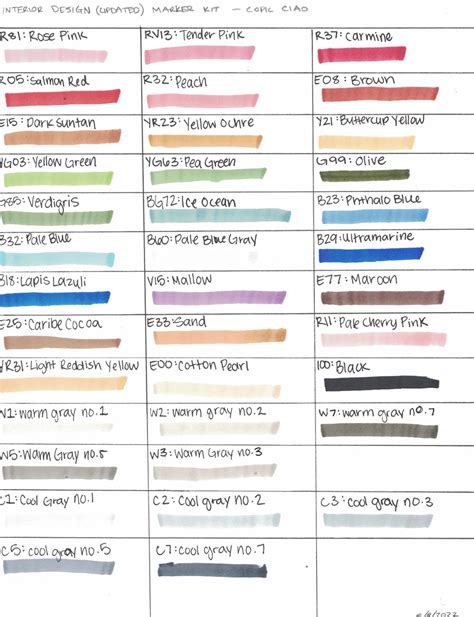 INTERIOR DESIGN (UPDATED) MARKER KIT - COPIC CIAO
R81: Rose Pink
RV13: Tender Pink
R37: Carmine
R05: Salmon Red
R32: Peach
E08: Brown
E15: Dark Suntan
YR23: Yellow Ochre
Y21: Buttercup Yellow
YG03: Yellow Green
YG63: Pea Green
G99: Olive
G85: Verdigris
BG72: Ice Ocean
B23: Phthalo Blue
B32: Pale Blue
B60: Pale Blue Gray
B29: Ultramarine
B18: Lapis Lazuli
V15: Mallow
E77: Maroon
E25: Caribe Cocoa
E33: Sand
R11: Pale Cherry Pink
YR31: Light Reddish Yellow
E00: Cotton Pearl
100: Black
W1: warm gray no.1
W2: warm gray no.2
W7: warm gray no.7
W5: Warm Gray no.5
W3: Warm Gray no.3
C1: Cool Gray no.1
C2: Cool gray no.2
C3: cool gray no.3
C5: cool gray no.5
C7: cool gray no.7